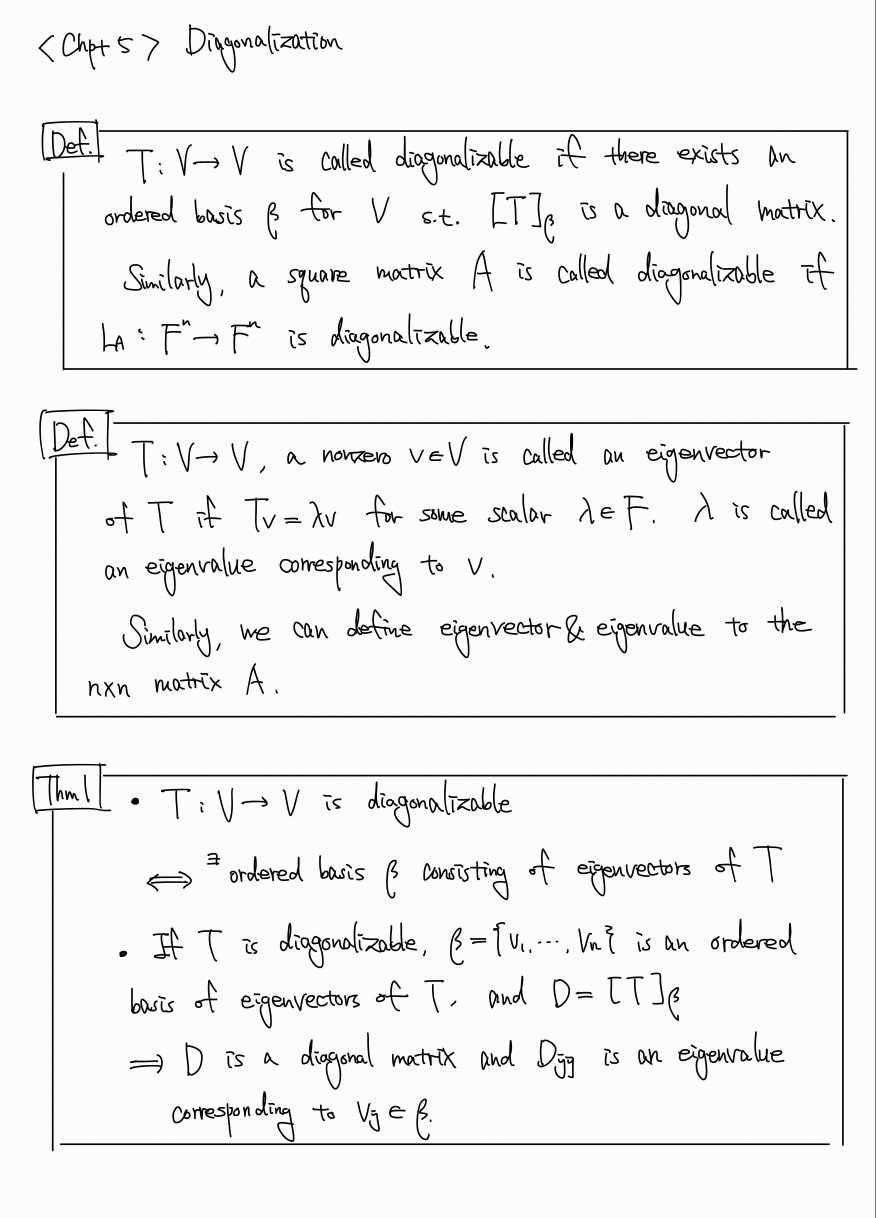 <Chpt 5> Diagonalization
Def.
T : V → V is called diagonalizable if there exists an
ordered basis β for V s.t. [T]β is a diagonal matrix.
Similarly, a square matrix A is called diagonalizable if
L_A : Fⁿ → Fⁿ is diagonalizable.
Def.
T : V → V, a nonzero v ∈ V is called an eigenvector
of T if Tv = λv for some scalar λ ∈ F. λ is called
an eigenvalue corresponding to v.
Similarly, we can define eigenvector & eigenvalue to the
n×n matrix A.
Thm 1
• T : V → V is diagonalizable
⟺ ∃ ordered basis β consisting of eigenvectors of T
• If T is diagonalizable, β = {v₁, ⋯, vₙ} is an ordered
basis of eigenvectors of T, and D = [T]β
⟹ D is a diagonal matrix and Dⱼⱼ is an eigenvalue
corresponding to vⱼ ∈ β.